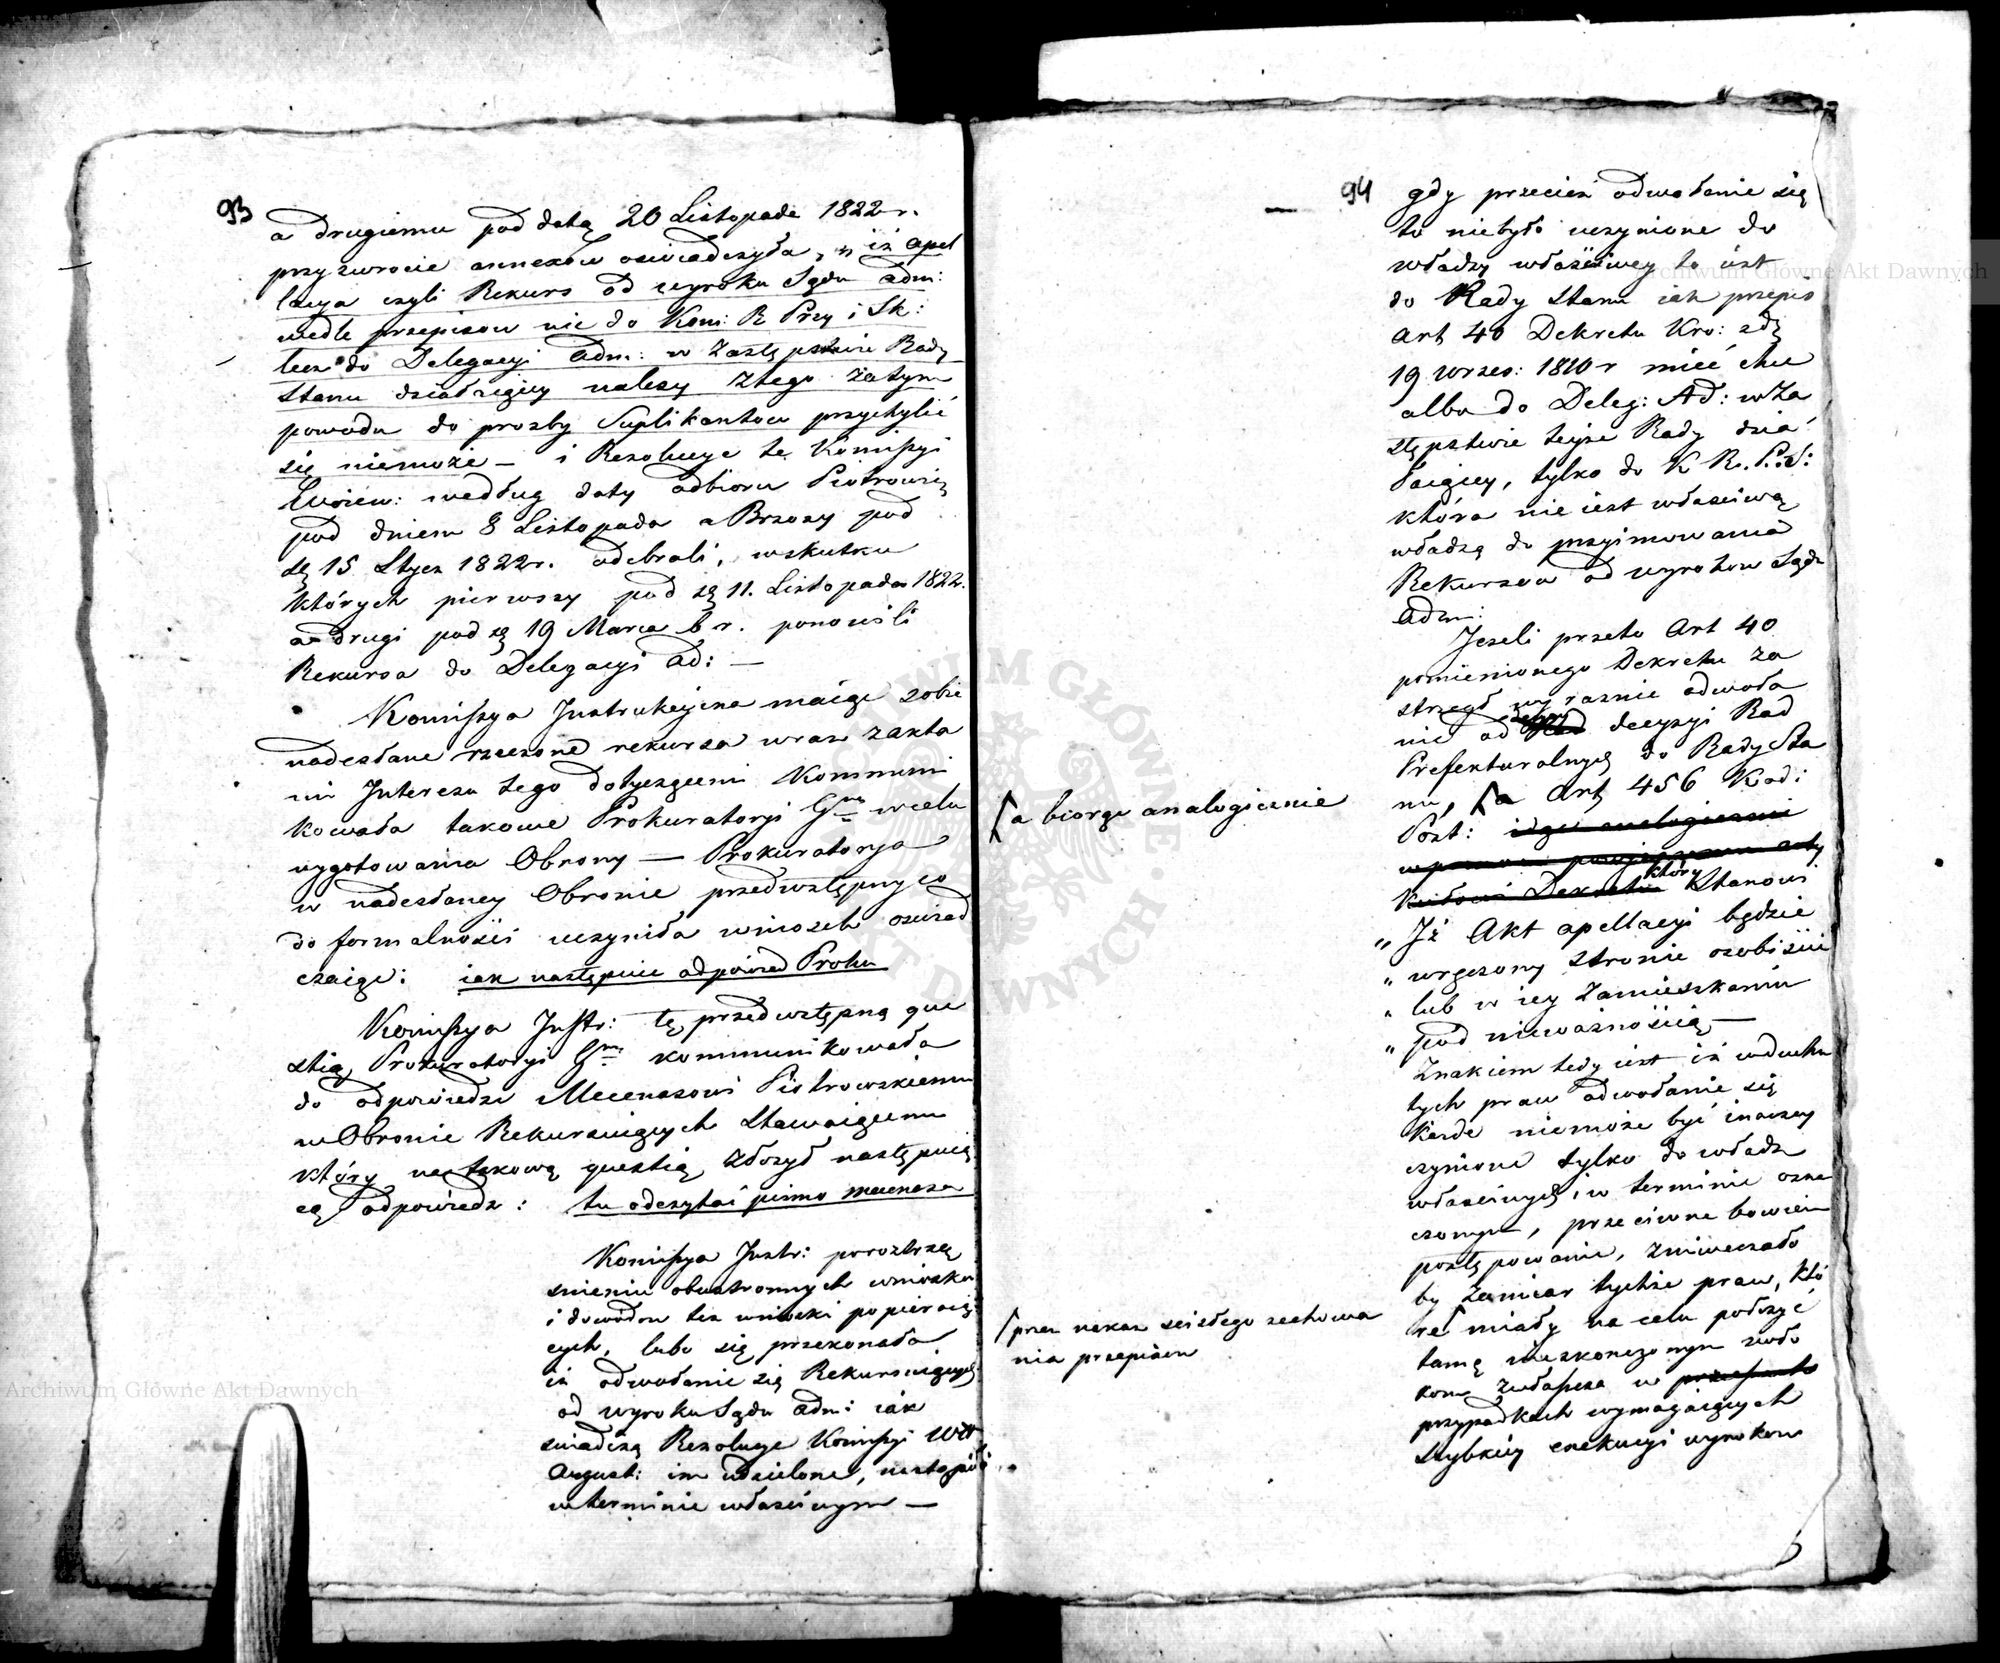 93
a drugiemu pod datą 20 Listopada 1822 r.
przy zwrocie annexów oswiadczyła, „ iż apel
lacya czyli Rekurs od wyroku Sądu adm:
wedle przepisow nie do Kom: R. Przy i Sk:
lecz do Delegacyi Adm: w Zastępstwie Rady
Stanu działaiącey należy Z tego zatym
powodu do prozby Suplikantow przychylić
się niemoże — i Rezolucye te Komissyi
Woiew: według daty odbioru Piotrowscy
pod dniem 8 Listopada a Brzozy pod
dą 15 Stycz 1822 r. odebrali, wskutku
których pierwszy pod dą 11. Listopada 1822.
a drugi pod dą 19 Marca b r. ponowili
Rekursa do Delegacyi Ad: —
Komissya Instrukcyina maiąc sobie
nadesłane rzeczone rekursa wraz z akta
mi Interesu tego dotyczącemi Kommuni
kowała takowe Prokuratoryi Gnej w celu
wygotowania Obrony — Prokuratorya
w nadesłaney Obronie przedwstępny co
do formalności uczyniła wniosek oswiad
czaiąc: iak następuie odpowied Proku
Komissya Instr: tę przedwstępną que
stią Prokuratoryi Gnej kommunikowała
do odpowiedzi Mecenasowi Piotrowskiemu
w Obronie Rekursuiących Stawaiącemu
który na takową questią złożył następuią
cą odpowiedz: tu odczytać pismo mecenasa
Komissya Instr: po roztrzą
snieniu obustronnych wniosków
i dowodow też wnioski popieraią
cych, lubo się przekonała
iż odwołanie się Rekursuiących
od wyroku Sądu adm: iak
swiadczą Rezolucye Komissyi Wdt
August: im udzielone, nastąpiło
w terminie właściwym —
94
gdy przecież odwołanie się
to niebyło uczynione do
władzy właściwey to iest
do Rady Stanu iak przepis
Art 40 Dekretu Kro: z dą
19 wrzes: 1810 r mieć chce
albo do Deleg: Ad: w Za
stępstwie teyże Rady dzia
łaiącey, tylko do K. R. P. i S:
która nie iest właściwą
władzą do przyimowania
Rekursow od wyrokow Sądu
adm:
Jeżeli przeto Art 40
pomienionego Dekretu za
strzegł wyraznie odwoła
nie od decyzyi Rad
Prefekturalnych do Rady Sta
nu, a Art 456 Kod:
a biorąc analogicznie
Post: idąc analogicznie
Dekretu który Stanowi
„ Iż Akt apellacyi będzie
„ wręczony stronie osobiście
„ lub w iey Zamieszkaniu
„ pod nieważnością —
Znakiem tedy iest iż w duchu
tych praw odwołanie się
każde niemoże być inaczey
czynione tylko do władz
właściwych i w terminie ozna
czonym, przeciwne bowiem
postępowanie, zniweczało
by zamiar tychże praw, któ
re miały na celu położyć
przez nakaz scisłego zachowa
nia przepisow
tamę nieskonczonym zwło
kom zwłaszcza w
przypadkach wymagaiących
szybkiey exekucyi wyrokow
Archiwum Główne Akt Dawnych